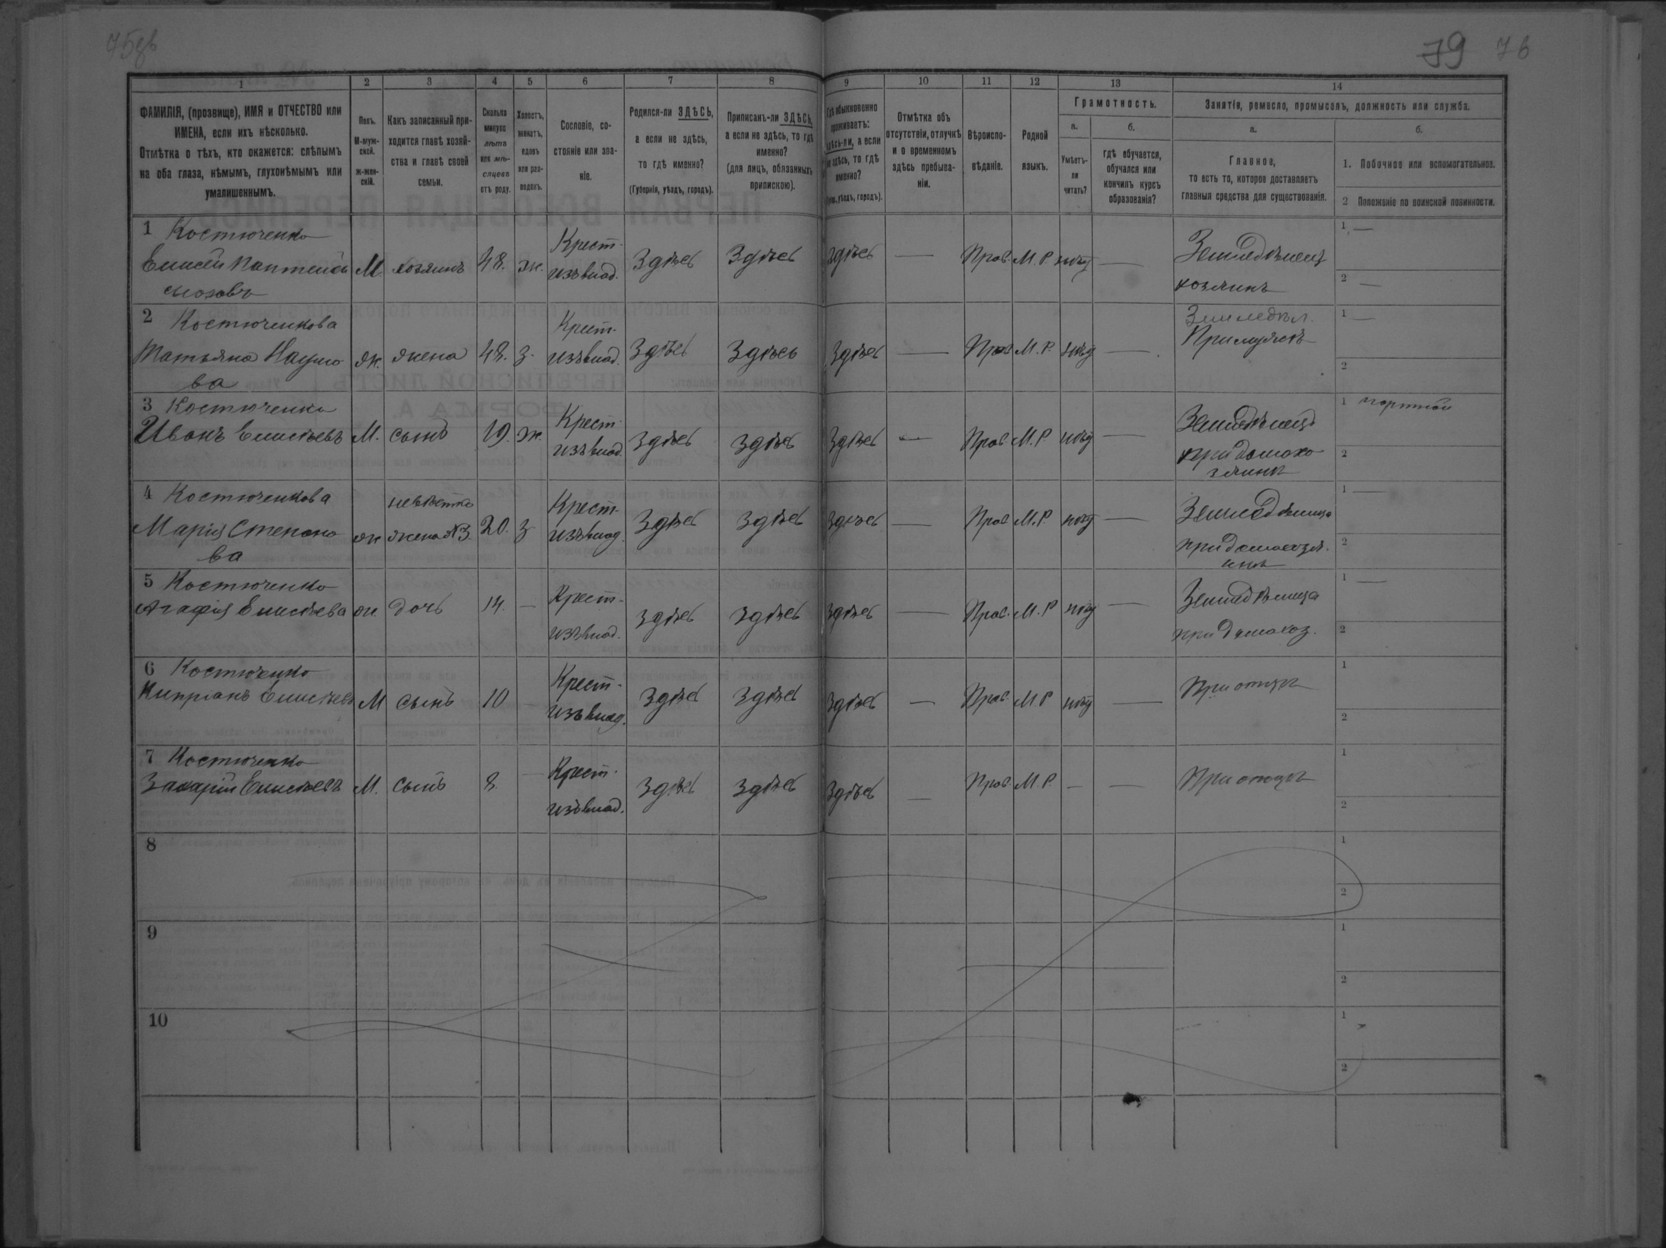 75об
79 76
1
2
3
4
5
6
7
8
9
10
11
12
13
14
ФАМИЛІЯ, (прозвище), ИМЯ и ОТЧЕСТВО или
ИМЕНА, если ихъ нѣсколько.
Отмѣтка о тѣхъ, кто окажется: слѣпымъ
на оба глаза, нѣмымъ, глухонѣмымъ или
умалишеннымъ.
Полъ.
М-муж-
ской.
ж-жен-
скій.
Какъ записанный при-
ходится главѣ хозяй-
ства и главѣ своей
семьи.
Сколько
минуло
лѣтъ
или мѣ-
сяцевъ
отъ роду.
Холостъ,
женатъ,
вдовъ
или раз-
веденъ.
Сословіе, со-
стояніе или зва-
ніе.
Родился-ли ЗДѢСЬ,
а если не здѣсь,
то гдѣ именно?
(Губернія, уѣздъ, городъ).
Приписанъ-ли ЗДѢСЬ,
а если не здѣсь, то гдѣ
именно?
(для лицъ, обязанныхъ
припискою).
Гдѣ обыкновенно
проживаетъ:
здѣсь-ли, а если
не здѣсь, то гдѣ
именно?
(Губ., уѣздъ, городъ).
Отмѣтка объ
отсутствіи, отлучкѣ
и о временномъ
здѣсь пребыва-
ніи.
Вѣроиспо-
вѣданіе.
Родной
языкъ.
Грамотность.
а.
Умѣетъ-
ли
читать?
б.
гдѣ обучается,
обучался или
кончилъ курсъ
образованія?
Занятія, ремесло, промыселъ, должность или служба.
а.
Главное,
то есть то, которое доставляетъ
главныя средства для существованія.
б.
1. Побочное или вспомогательное.
2 Положеніе по воинской повинности.
1 Костюченко
Елисей
М хозяинъ 48. ж. Крест. изъ влад. Здѣсь Здѣсь Здѣсь — Прав. М.Р нѣт —
Земледѣлец
хозяинъ
1 —
2 —
2 Костюченкова
Татьяна Наумо
ва
ж. жена 48. з. Крест. изъ влад. Здѣсь Здѣсь Здѣсь — Прав М.Р. нѣт —
Земледѣл.
При мужѣ
1 —
2
3 Костюченко
Иванъ Елисѣевъ
М. сынъ 19. ж. Крест. изъ влад. Здѣсь Здѣсь Здѣсь — Прав. М.Р нѣт —
Земледѣлец
при домохо
зяинѣ
1
2
4 Костюченкова
Марія Степано
ва
ж. невѣстка
жена №3. 20. з Крест. изъ влад. Здѣсь Здѣсь Здѣсь — Прав М.Р нѣт —
Земледѣлица
при домохозя
инѣ
1 —
2
5 Костюченко
Агафія Елисѣева
ж. дочь 14. — Крест. изъ влад. Здѣсь Здѣсь Здѣсь — Прав. М.Р нѣт —
Земледѣлица
при домохоз.
1 —
2
6 Костюченко
Кипріанъ Елисѣевъ
М сынъ 10 Крест. изъ влад. Здѣсь Здѣсь Здѣсь — Прав М Р нѣт —
При отцѣ
1
2
7 Костюченко
Захарій Елисѣевъ
М. сынъ 8. Крест. изъ влад. Здѣсь Здѣсь Здѣсь — Прав М.Р. — —
При отцѣ
1
2
8
1
2
9
1
2
10
1
2